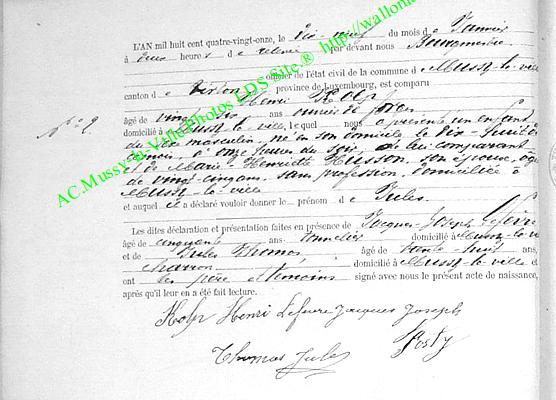 L'AN mil huit cent quatre-vingt-onze, le dix-neuf du mois de Janvier
à deux heures de relevée Par devant nous Bourgmestre
officier de l'état civil de la commune de Mussy-la-ville
canton de Virton province de Luxembourg, est comparu
Henri Kolp
âgé de vingt ans
N° 9
domicilié à Mussy-la-ville, lequel nous a présenté un enfant
du sexe masculin, né en son domicile le dix-huit de
ce mois, à onze heures du soir, de lui comparant
et de Marie Henriette Husson, son épouse, âgée
de vingt-cinq ans, sans profession, domiciliée à
Mussy-la-ville
et auquel il a déclaré vouloir donner le prénom de Jules
Les dites déclaration et présentation faites en présence de Jacques-Joseph Lefevre
âgé de cinquante ans tonnelier domicilié à Mussy-la-v
et de Jules Thomas, âgé de trente huit ans,
charron domicilié à Mussy-la-ville et
ont les père et témoins signé avec nous le présent acte de naissance,
après qu'il leur en a été fait lecture.
Kolp Henri Lefevre Jacques Joseph
Thomas Jules
AC.Mussy-la-Ville Photos LDS Site ® http://wallonia